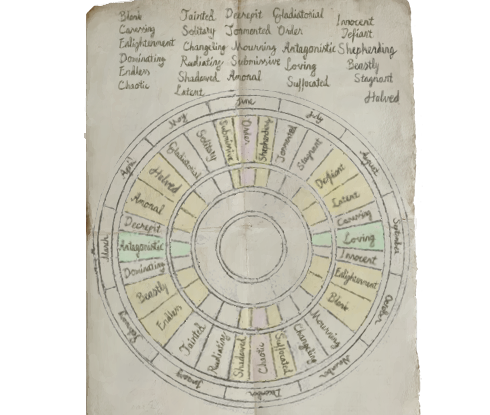 Blent Tainted Decrepit Gladiatorial Innocent
Careering Solitary Tormented Order Defiant
Enlightenment Changeling Mourning Antagonistic Shepherding
Dominating Radiating Submissive Loving Beastly
Endless Shadowed Amoral Suffocated Stagnant
Chaotic Latent Halved
June
July
August
September
October
November
December
January
February
March
April
May
Order
Shepherding
Tormented
Stagnant
Defiant
Latent
Careering
Loving
Innocent
Enlightenment
Blent
Mourning
Changeling
Suffocated
Chaotic
Shadowed
Radiating
Tainted
Endless
Beastly
Dominating
Antagonistic
Decrepit
Amoral
Halved
Gladiatorial
Solitary
Submissive